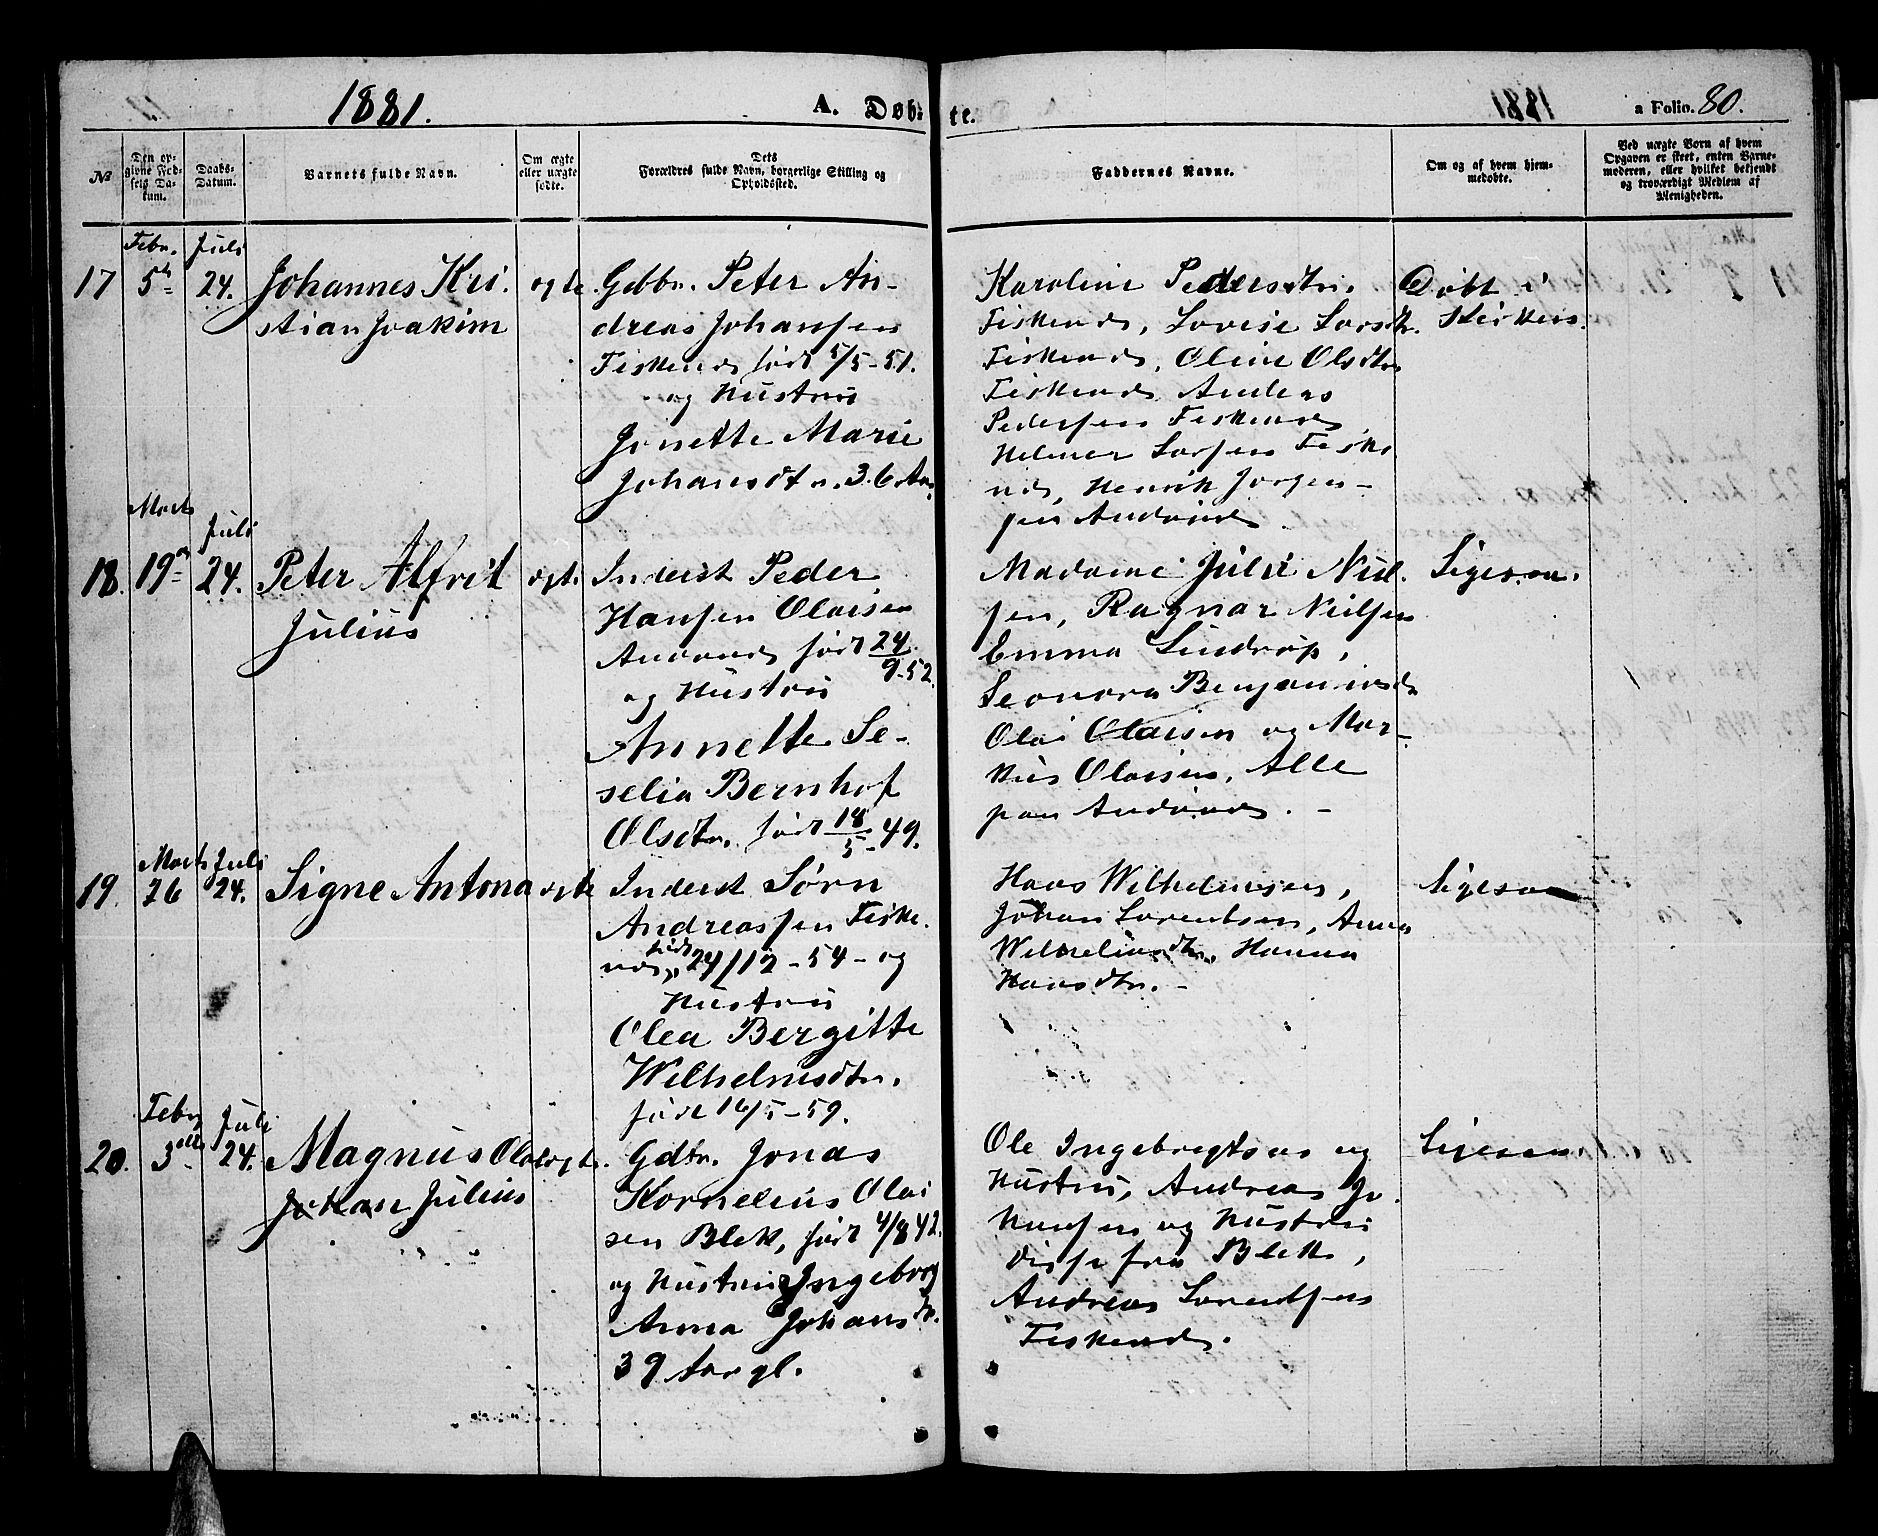 1881.
A. Døb-
te.
a Folio. 80.
№
Den op-
givne Fød-
sels Da-
tum.
Daabs-
Datum.
Barnets fulde Navn.
Om ægte
eller uægte
fødte.
Dets
Forældres fulde Navn, borgerlige Stilling og
Opholdssted.
Faddernes Navne.
Om og af hvem hjem-
medøbte.
Ved uægte Børn af hvem
Opgaven er skeet, enten Barne-
moderen, eller hvilket bekjendt
og troværdigt Medlem af
Menigheden.
17
Febr.
5te
Juli
24.
Johannes Kri-
stian Joakim
ægte.
Gbbr. Peter An-
dreas Johansen
Fiskends født 5/5-51.
og Hustru
Jonette Marie
Johansdtr. 36 Aar
Karoline Pedersdtr.
Fiskends, Lovise Larsdtr.
Fiskends, Oline Olsdtr
Fiskends Anders
Pedersen Fiskends
Helmer Larsen Fiske
nds, Henrik Jørgen-
sen Andørnds
Døbt i
Kirken.
18.
Marts
19de
Juli
24.
Peter Alfret
Julius
ægt.
Inderst Peder
Hansen Olaisen
Andørnds født 24/9-52.
og Hustru
Annette Se-
selia Bernhof
Olsdtr. født 18/5-49.
Madame Julie Niel-
sen, Ragnar Nielsen
Emma Lindrop,
Leonora Benjaminsdr
Olai Olaisen og Mar-
kus Olaisen, Alle
paa Andørnds. -
Ligesaa.
19.
Marts
26
Juli
24.
Signe Antona
ægte
Inderst Sørn
Andreassen Fiske-
nds, født 24/12-54- og
Hustru
Olea Bergitte
Wilhelmsdtr.
født 16/5-59.
Hans Wilhelmsen,
Johan Lorentsen, Anna
Wilhelmsdtr, Hanna
Hansdtr. -
Ligesaa
20.
Febr
3die
Juli
24.
Magnus Ole
Johan Julius
ægte.
Gdbr. Jonas
Kornelius Olai
sen Blek, født 4/8 42.
og Hustru Ingeborg
Anna Johansdr.
39 Aar gl.
Ole Ingebregtsen og
Hustru, Andreas Jo-
hansen og Hustru
disse fra Blek,
Andreas Lorentsen
Fiskends.
Ligesaa.